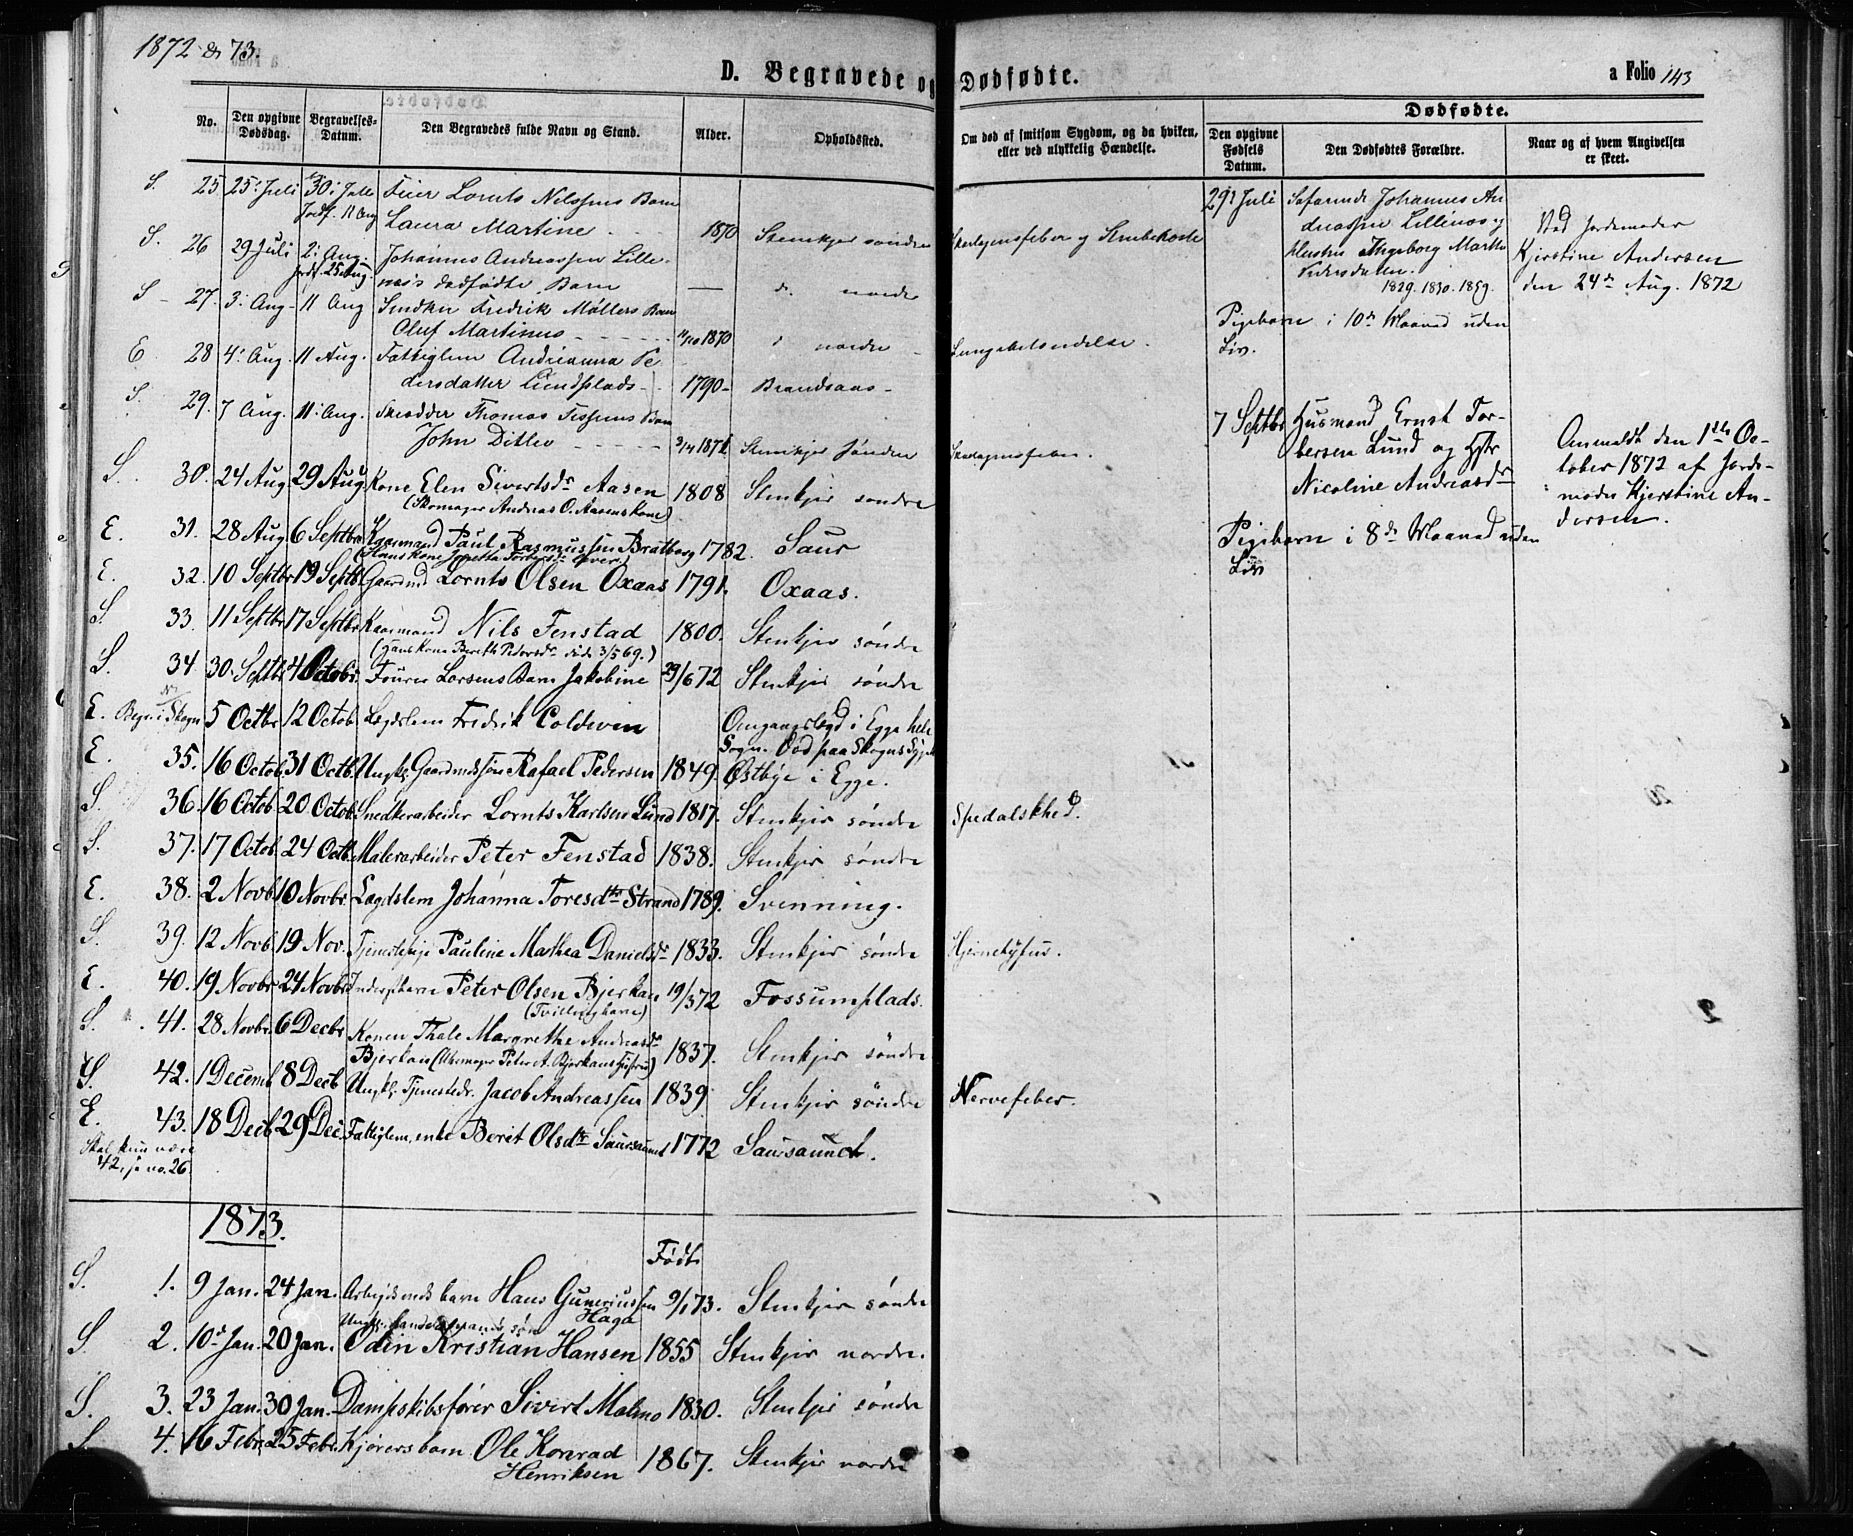 1872 & 73.
D. Begravede og Dødfødte.
a Folio 143
No.
Den opgivne Dødsdag.
Begravelses-Datum.
Den Begravedes fulde Navn og Stand.
Alder.
Opholdssted.
Om død af smitsom Sygdom, og da hviken, eller ved ulykkelig Hændelse.
Dødfødte.
Den opgivne Fødsels Datum.
Den Dødfødtes Forældre.
Naar og af hvem Angivelsen er skeet.
S. 25 25: Juli 30: Juli Feier Lornts Nilssens Barn
Jordf. 11 Aug Laura Martine 1870 Stenkjer søndre Skarlagensfeber og Strubehoste
S. 26 29 Juli 2: Aug. Johannes Andreassen Lille-
Jordf. 25 Aug. næs dødfødte Barn — do nordre
S 27. 3: Aug 11 Aug Snedker Fredrik Møllers Barn
Oluf Martinus 1870 nordre Lungebetændelse.
E 28 4: Aug. 11 Aug. Fattiglem Andrianna Pe-
dersdatter Lundplads 1790 Brandsaas
S. 29. 7 Aug. 11: Aug. Skrædder Thomas Barn
John Ditlev Stenkjer søndre Skarlagensfeber.
S. 30. 24 Aug 29 Aug Kone Elen Sivertsdr Aasen 1808 Stenkjer søndre
(Skomager Andreas O. Aasens kone)
E. 31. 28 Aug 6 Septbr Kaarmand Paul Rasmussen Bratberg 1782. Saur
(Hans kone lever)
E. 32. 10 Septbr 19 Septb. Gaardmd Lornts Olsen Oxaas 1791. Oxaas.
S 33. 11 Septbr 17 Septbr Kaarmand Nils Fenstad 1800. Stenkjer søndre
(Hans kone Bereth Pedersdr døde 3/5 69.)
S. 34 30 Septbr 4 Octobr. Larsens Barn Jakobine 29/6 72 Stenkjer søndre
E. Begr. i Skogn 5 Octbr 12 Octob. Lægdslem Fredrik Coldevin Omgangslægd i Egge hele
Sogn. Død paa Skogns Sygeh
E. 35. 16 Octob. 31 Octb. Ungk. Gaardmdssøn Rafael Pedersen 1849. Østbye i Egge.
S. 36. 16 Octob 20 Octob. Snedkerarbeider Lornts Karlsen Lund 1817. Stenkjer søndre Spedalskhed.
S. 37. 17 Octob. 24 Octb. Malerarbeider Peter Fenstad 1838. Stenkjer søndre
E. 38. 2 Novb. 10 Novbr. Lægdslem Johanna Toresdtr Strand 1789. Svenning.
S. 39. 12 Novb. 19 Nov. Tjenestepige Pauline Mathea Danielsdr 1833. Stenkjer søndre
E. 40. 19 Novbr 24 Novbr Inderstbarn Peter Olsen Bjerkan 19/3 72 Fossumplads.
(Tvillingbarn)
S. 41. 28 Novbr. 6 Decbr Konen Thale Margrethe Andreasdr
Bjerkan (Uhrmager Peter A. Bjerkans Hustru) 1837. Stenkjer søndre
S. 42. 1 Decemb 8 Decb Ungk. Tjenestedr. Jacob Andreassen 1839. Stenkjer søndre Nervefeber.
E. 43. 18 Decb 29 Dec. Fattiglem, enke Berit Olsdtr Saursaunet 1772 Saursaunet.
Skal kun være
42, se no. 26.
29 Juli Johannes An-
dreassen Lillenæs og
Hustru Ingeborg Marth
Pedersdatter.
1829. 1830. 1859.
Ved Jordemoder
Kjerstine Andersen
den 24de Aug. 1872
Pigebarn i 10de Maaned uden
Liv.
7 Septbr Husmand Ernst Tor-
bersen Lund og Hstr
Nicoline Andreasdr
Anmeldt den 1ste Oc-
tober 1872 af Jorde-
moder Kjerstine An-
dersen.
Pigebarn i 8de Maaned uden
Liv
1873.
Født
S. 1. 9 Jan. 24 Jan. Arbeidsmds barn Hans Guneriussen 9/1 73. Stenkjer søndre
Haga
S 2. 10de Jan. 20 Jan. Ungk. handelsmands søn
Odin Kristian Hansen 1855 Stenkjer nordre.
S. 3. 23 Jan. 30 Jan. Dampskibsfører Sivert Malmo 1830. Stenkjer søndre
S. 4. 16 Febr. 25 Febr. Kjørersbarn Ole Konrad
Henriksen 1867. Stenkjer nordre